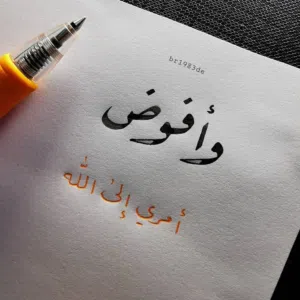 br1983de
وأفوض
أمري إلىٰ الله